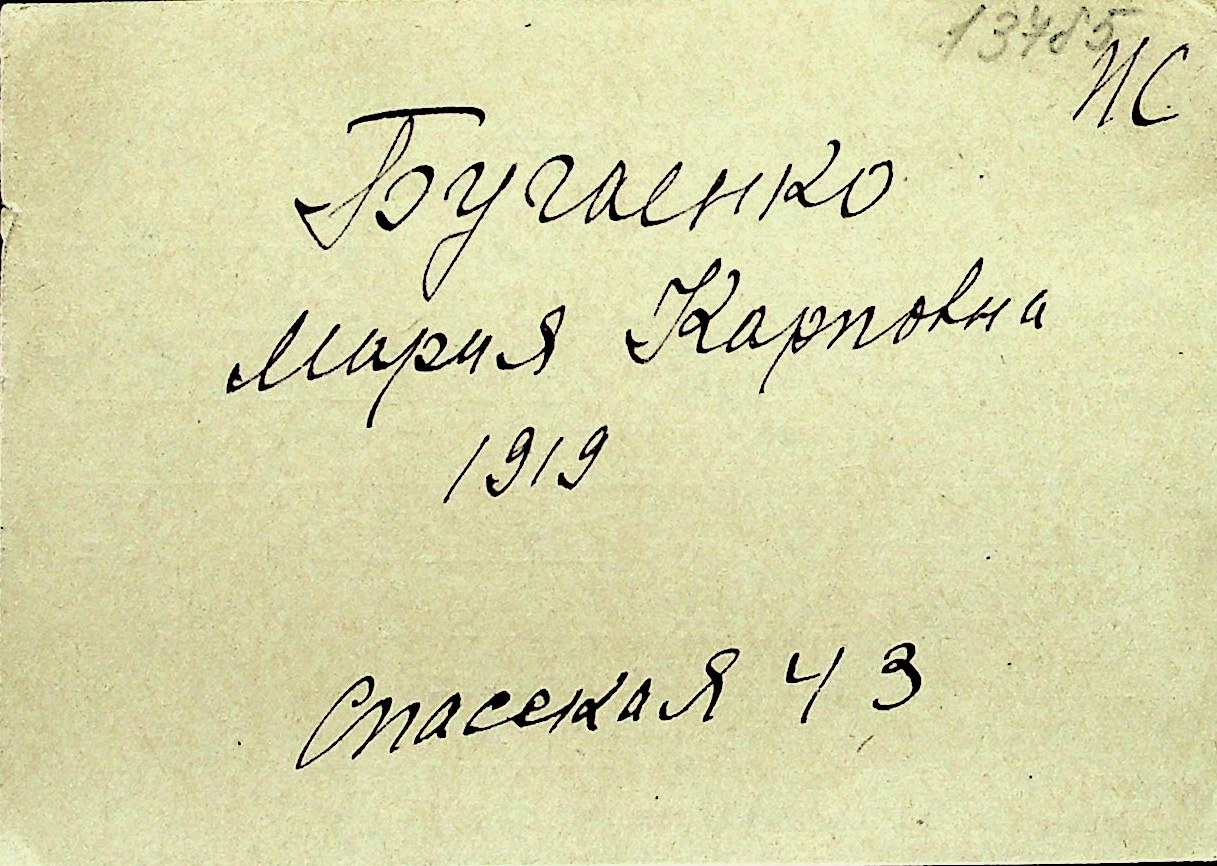 13785
ИС
Бугаенко
Мария Карповна
1919
Спасская 43